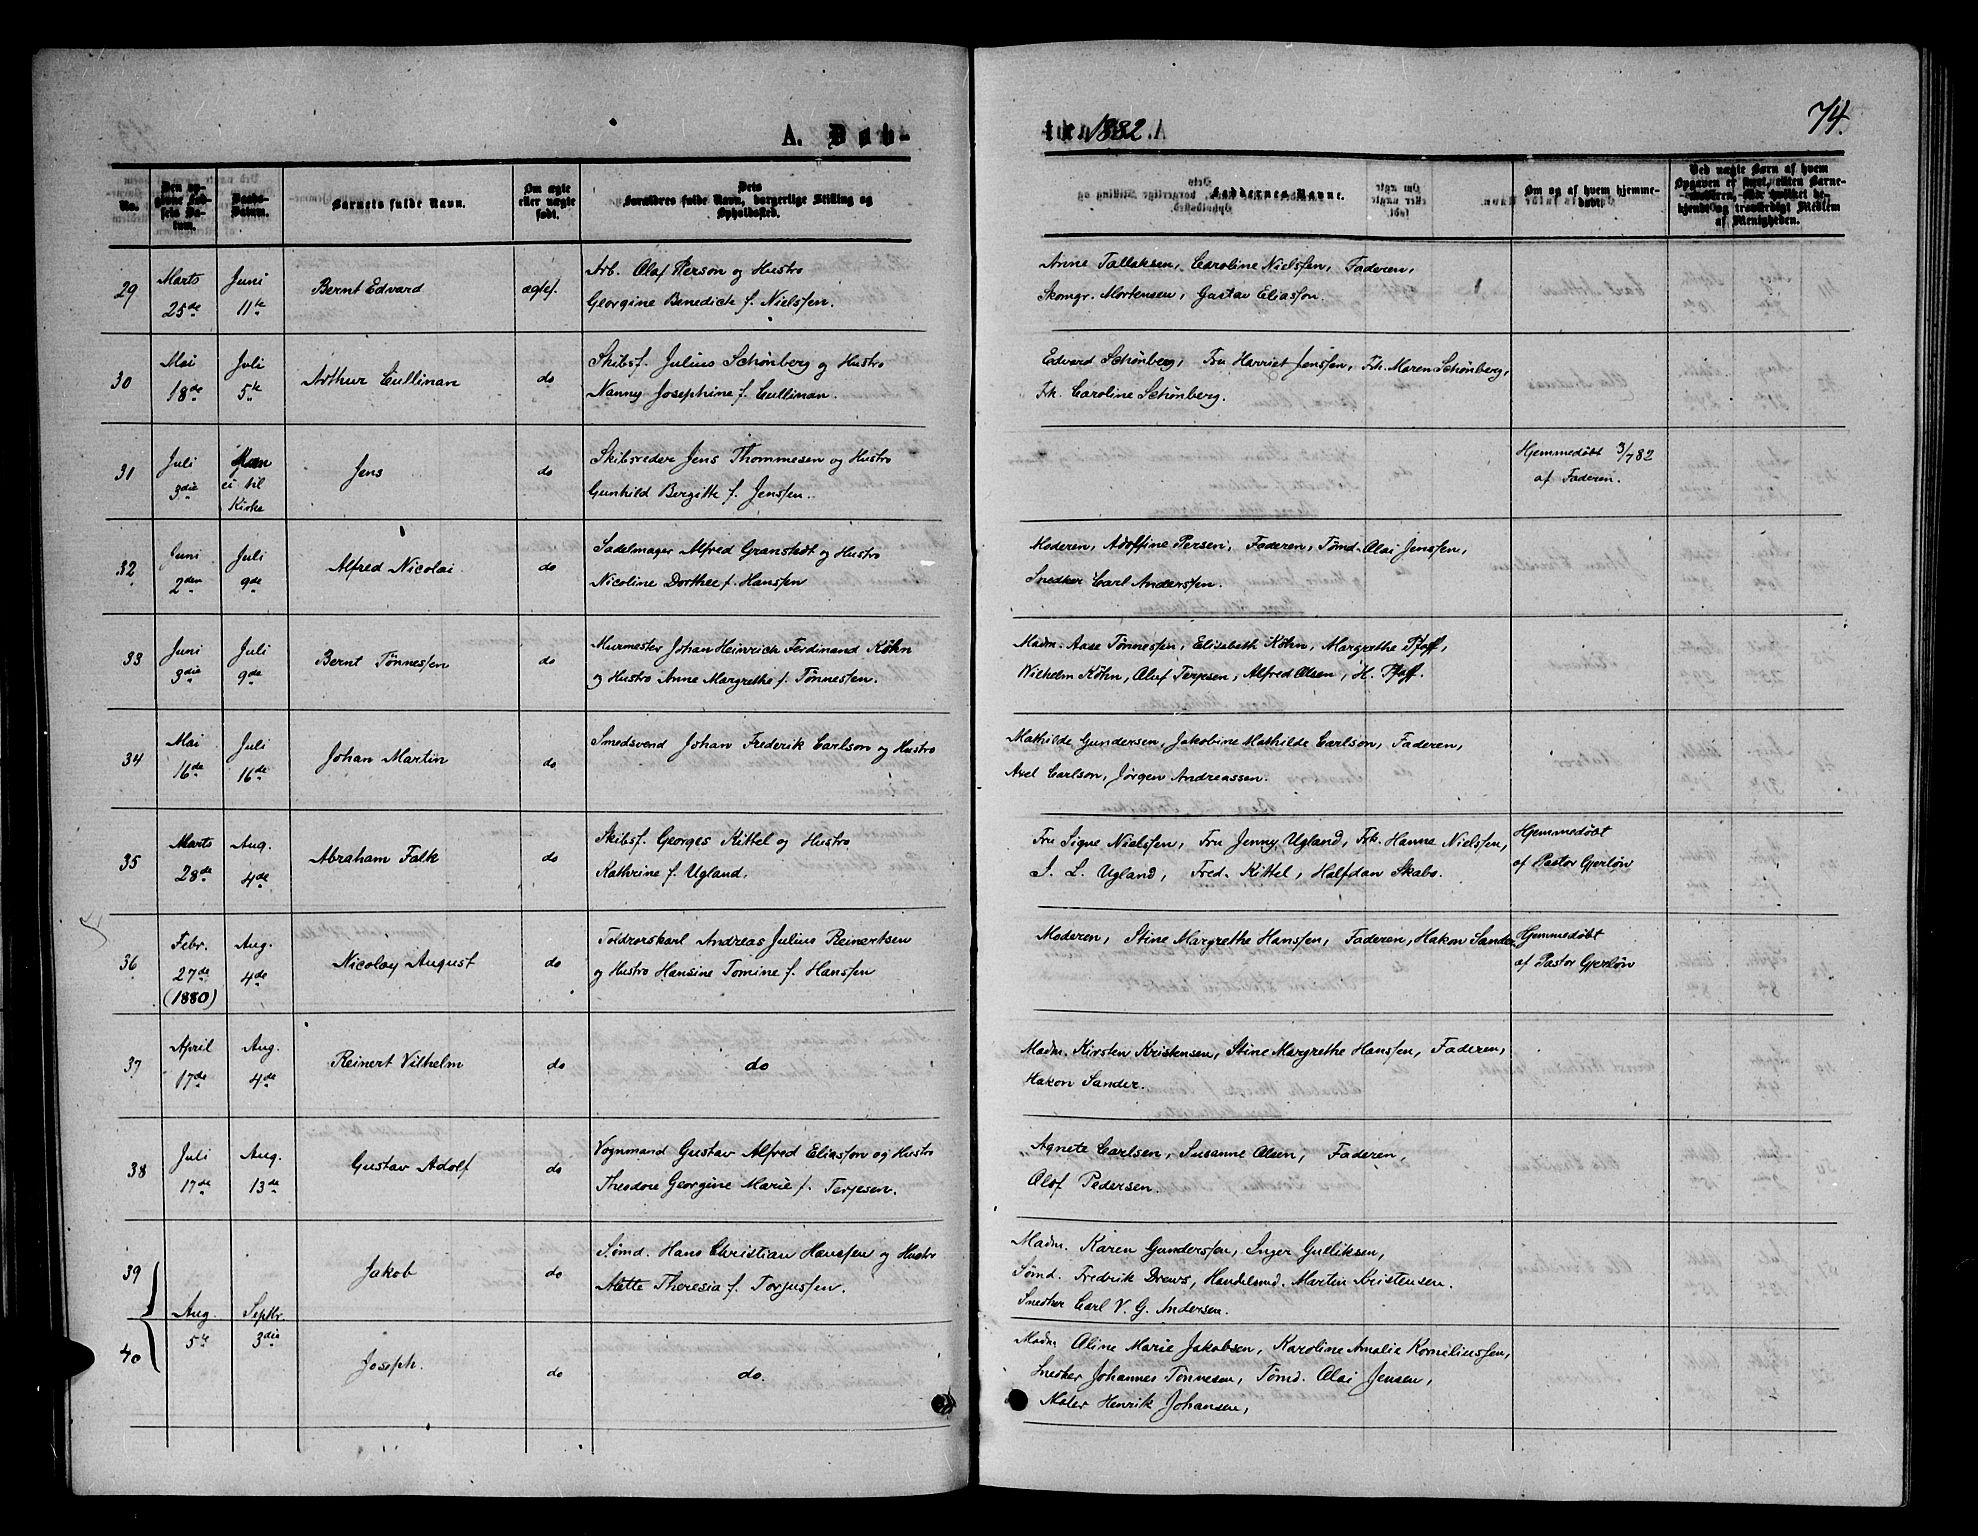 74.
A. Døb-
te. 1882.
No.
Den op-
givne Fød-
sels Da-
tum.
Daabs-
Datum.
Barnets fulde Navn.
Om ægte
eller uægte
født.
Dets
Forældres fulde Navn, borgerlige Stilling og
Opholdssted.
Faddernes Navne.
Om og af hvem hjemme-
døbt.
Ved uægte Børn af hvem
Opgaven er gjort, enten Barne-
moderen, eller hvilket be-
kjendt og troværdigt Medlem
af Menigheden.
29
Marts
25de
Juni
11te
Bernt Edvard
ægtef.
Arb. Olaf Person og Hustro
Georgine Benedich f. Nielssen.
Anne Tallaksen, Caroline Nielssen, Faderen,
Skomgr. Mortensen, Gustav Eliasson.
30
Mai
18de
Juli
5te
Arthur Cullinan
do
Skibsf. Julius Schønberg og Hustro
Nanny Josephine f. Cullinan.
Edvard Schønberg, Fru Harriet Jenssen, Frk. Maren Schønberg,
Frk. Caroline Schønberg.
31
Juli
3die
ei til
Kirke
Jens
do
Skibsreder Jens Thommesen og Hustro
Gunhild Bergitte f. Jenssen.
Hjemmedøbt 3/7 82
af Faderen.
32
Juni
2den
Juli
9de
Alfred Nicolai
do
Sadelmager Alfred Granstedt og Hustro
Nicoline Dorthee f. Hanssen
Moderen, Adolfine Persen, Faderen, Tømd. Olai Jenssen,
Snedker Carl Anderssen.
33
Juni
3die
Juli
9de
Bernt Tönnessen
do
Murmester Johan Heinrich Ferdinand Köhn
og Hustro Anne Margrethe f. Tönnessen.
Madm. Aase Tønnessen, Elisabeth Köhn, Margrethe Pfaff,
Wilhelm Köhn, Oluf Terjesen, Alfred Olsen, H. Pfaff.
34
Mai
16de
Juli
16de
Johan Martin
do
Smedsvend Johan Frederik Carlson og Hustro
Mathilde Gundersen, Jakobine Mathilde Carlson, Faderen,
Axel Carlson, Jörgen Andreassen.
35
Marts
28de
Aug.
4de
Abraham Falk
do
Skibsf. Georges Kittel og Hustro
Kathrine f. Ugland.
Fru Signe Nielssen, Fru Jenny Ugland, Frk. Hanna Nielssen,
J. L. Ugland, Fred. Kittel, Halfdan Skabo.
Hjemmedøbt
af Pastor Gjerløw
36
Febr.
27de
(1880)
Aug.
4de
Nicolay August
do
Toldrorskarl Andreas Julius Reinertsen
og Hustro Hansine Tomine f. Hanssen
Moderen, Stine Margrethe Hanssen, Faderen, Hakon Sander
Hjemmedøbt
af Pastor Gjerløw
37
April
17de
Aug.
4de
Reinert Vilhelm
do
do
Madm. Kirsten Kristensen, Stine Margrethe Hanssen, Faderen,
Hakon Sander.
38
Juli
17de
Aug.
13de
Gustav Adolf
do
Vognmand Gustav Alfred Eliasson og Hustro
Theodore Georgine Marie f. Terjesen.
Agnete Carlsen, Susanne Olsen, Faderen,
Olof Pedersen.
39
Jakob
do
Tömd. Hans Christian Hanssen og Hustro
Mette Theresia f. Torjussen.
Madm. Karen Gunderssen, Inger Gulliksen,
Tömd. Fredrik Drews, Handelsmd. Martin Kristensen.
Snedker Carl V. G. Andersen.
Aug.
5te
Septbr.
3die
40
Joseph.
do
do.
Madm Aline Marie Jakobsen, Karoline Amalie Korneliussen,
Snedker Johannes Tönnesen, Tømd. Olai Jensen,
Maler Henrik Johansen,